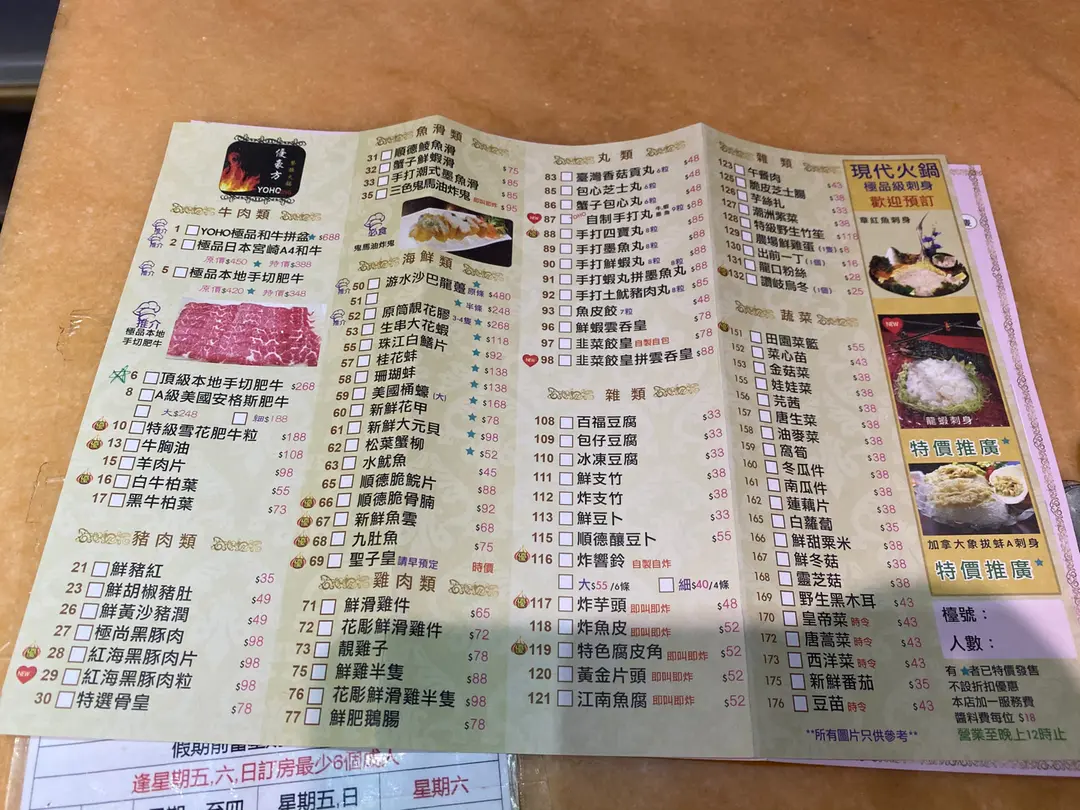 優豪方
YOHO
牛肉類
1 YOHO極品和牛拼盆 ★ $688
2 極品日本宮崎A4和牛
原價$450 ★ 特價$388
5 極品本地手切肥牛
原價$420 ★ 特價$348
推介
極品本地
手切肥牛
6 頂級本地手切肥牛 $268
8 A級美國安格斯肥牛
大$248 細$188
10 特級雪花肥牛粒 $188
13 牛胸油 $108
15 羊肉片 $98
16 白牛柏葉 $55
17 黑牛柏葉 $73
豬肉類
21 鮮豬紅 $35
23 鮮胡椒豬肚 $49
26 鮮黃沙豬潤 $49
27 極尚黑豚肉 $98
28 紅海黑豚肉片 $98
NEW 29 紅海黑豚肉粒 $98
30 特選骨皇 $78
魚滑類
31 順德鯪魚滑
32 蟹子鮮蝦滑 $75
33 手打潮式墨魚滑 $85
35 三色鬼馬油炸鬼 即叫即炸 $95
必食
鬼馬油炸鬼
海鮮類
50 游水沙巴龍躉 原條 ★ $480
51 半條 ★ $248
52 原筒靚花膠 3-4隻 ★ $268
53 生串大花蝦 ★ $118
55 珠江白鱔片 ★ $92
57 桂花蚌 ★ $138
58 珊瑚蚌 ★ $138
59 美國桶蠔 (大) ★ $168
60 新鮮花甲 ★ $78
61 新鮮大元貝 ★ $98
62 松葉蟹柳 ★ $52
63 水魷魚 $45
65 順德脆鯇片 $88
66 順德脆骨腩 $92
67 新鮮魚雲 $68
68 九肚魚 $75
69 聖子皇 請早預定 時價
雞肉類
71 鮮滑雞件 $65
72 花彫鮮滑雞件 $72
73 靚雞子 $78
75 鮮雞半隻 $88
76 花彫鮮滑雞半隻 $98
77 鮮肥鵝腸 $78
丸類
83 臺灣香菇貢丸 6粒 $48
85 包心芝士丸 6粒 $48
86 蟹子包心丸 6粒 $48
NEW 87 YOHO 自制手打丸 9粒 $88
88 手打四寶丸 8粒 $85
89 手打墨魚丸 8粒 $88
90 手打鮮蝦丸 8粒 $88
91 手打蝦丸拼墨魚丸 8粒 $88
92 手打土魷豬肉丸 8粒 $85
93 魚皮餃 7粒 $48
96 鮮蝦雲吞皇 $78
97 韭菜餃皇 自製自包 $78
NEW 98 韭菜餃皇拼雲吞皇 $88
雜類
108 百福豆腐 $33
109 包仔豆腐 $33
110 冰凍豆腐 $33
111 鮮支竹 $33
112 炸支竹 $38
113 鮮豆卜 $33
115 順德釀豆卜 $55
116 炸響鈴 自製自炸
大$55/6條 細$40/4條
117 炸芋頭 即叫即炸 $48
118 炸魚皮 即叫即炸 $52
119 特色腐皮角 即叫即炸 $52
120 黃金片頭 即叫即炸 $52
121 江南魚腐 即叫即炸 $52
雜類
123 午餐肉
125 脆皮芝士腸 $43
127 芋絲礼 $38
128 潮洲紫菜 $33
129 特級野生竹笙 $118
130 農場鮮雞蛋 (1隻) $8
131 出前一丁 (1個) $16
132 龍口粉絲 $28
讚岐烏冬 (1個) $25
蔬菜
151 田園菜籃 $55
152 菜心苗 $43
153 金菇菜 $38
155 娃娃菜 $38
156 芫茜 $38
157 唐生菜 $38
158 油麥菜 $38
159 窩筍 $38
160 冬瓜件 $38
161 南瓜件 $38
162 蓮藕片 $38
165 白蘿蔔 $35
166 鮮甜粟米 $38
167 鮮冬菇 $38
168 靈芝菇 $38
169 野生黑木耳 $43
170 皇帝菜 時令 $43
172 唐蒿菜 時令 $43
173 西洋菜 時令 $43
175 新鮮番茄 $35
176 豆苗 時令 $43
**所有圖片只供參考**
現代火鍋
極品級刺身
歡迎預訂
章紅魚刺身
NEW
龍蝦刺身
特價推廣★
加拿大象拔蚌A刺身
特價推廣★
檯號：
人數：
有★者已特價發售
不設折扣優惠
本店加一服務費
醬料費每位 $18
營業至晚上12時止
逢星期五,六,日訂房最少6個成人
星期五,日 星期六